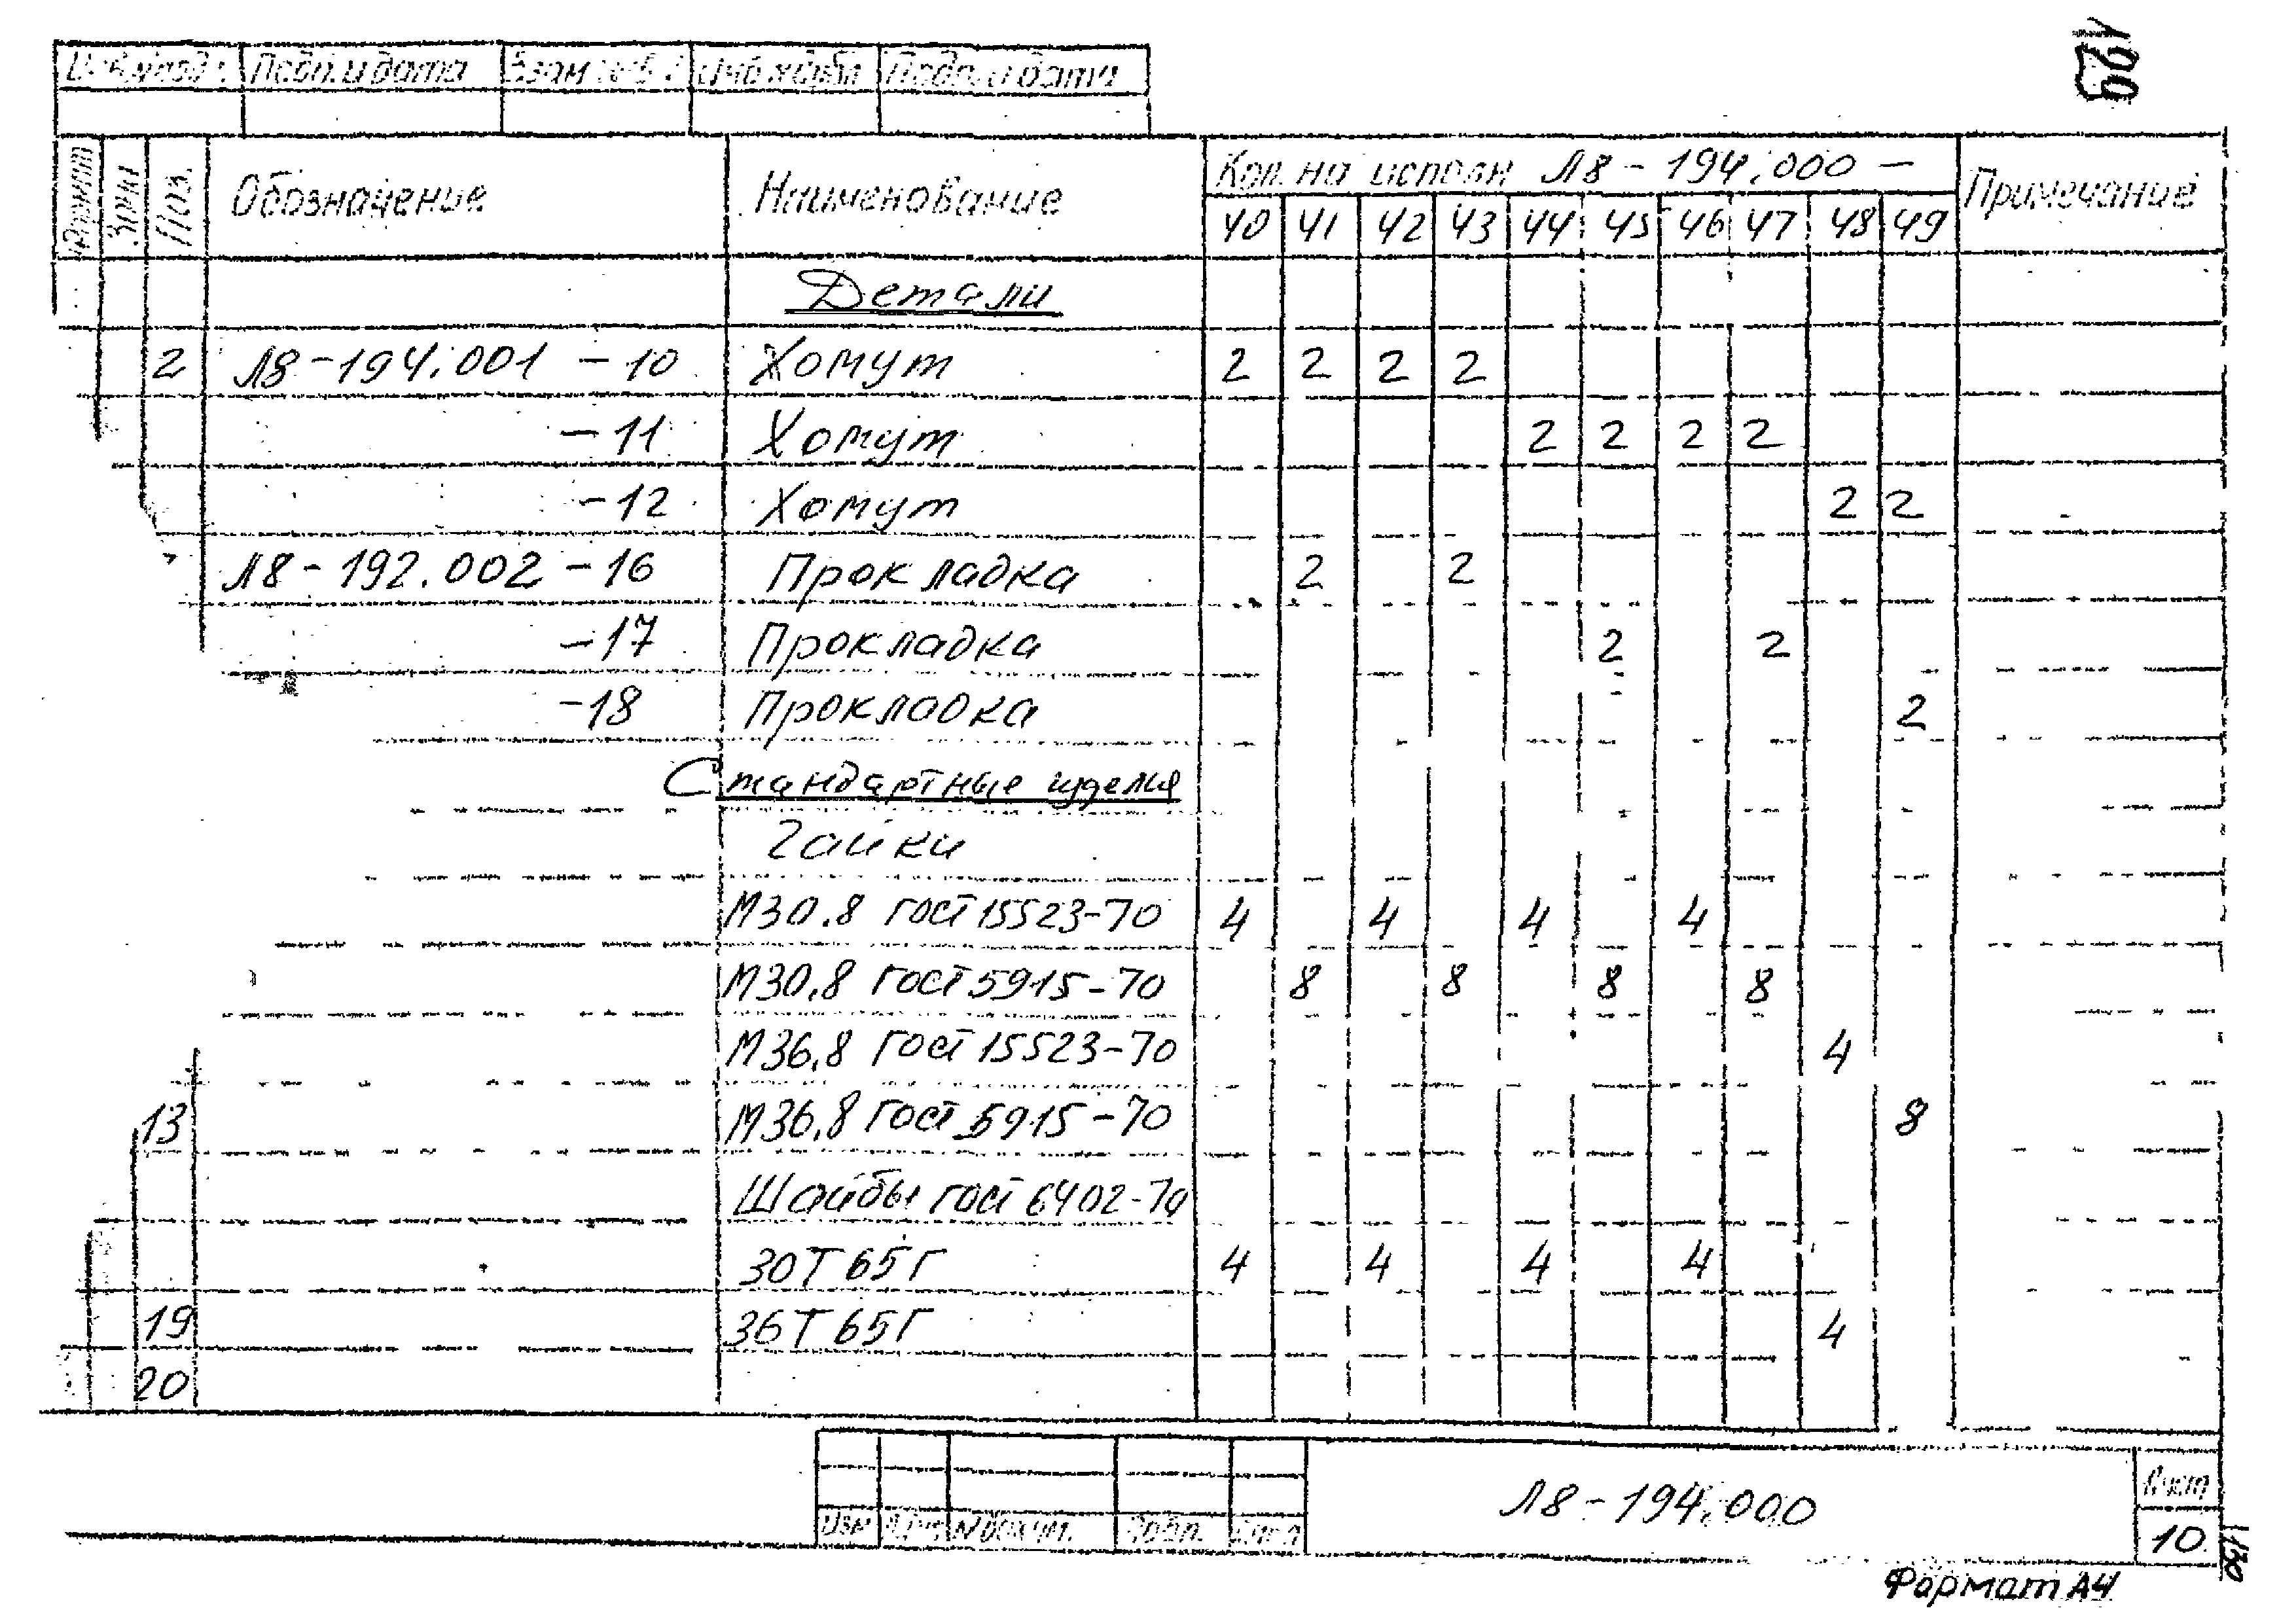 129
Подп. и дата Взам. Подп. и дата
Формат Зона Поз. Обозначение Наименование Кол. на исполн Л8-194.000 — Примечание
40 41 42 43 44 45 46 47 48 49
Детали
2 Л8-194.001 -10 Хомут 2 2 2 2
-11 Хомут 2 2 2 2
-12 Хомут 2 2
Л8-192.002 -16 Прокладка 2 2
-17 Прокладка 2 2
-18 Прокладка 2
Стандартные изделия
Гайки
М30.8 ГОСТ 15523-70 4 4 4 4
М30.8 ГОСТ 5915-70 8 8 8 8
М36.8 ГОСТ 15523-70 4
13 М36.8 ГОСТ 5915-70 8
Шайбы ГОСТ 6402-70
30Т 65Г 4 4 4 4
19 36Т 65Г 4
20
Л8-194.000
Лист
Изм № докум. Подп.
10
130
Формат А4